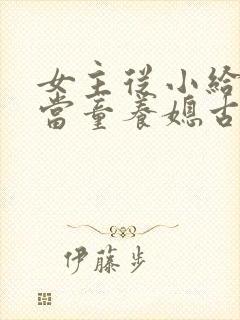 女主從小給
當童養媳古
伊藤步